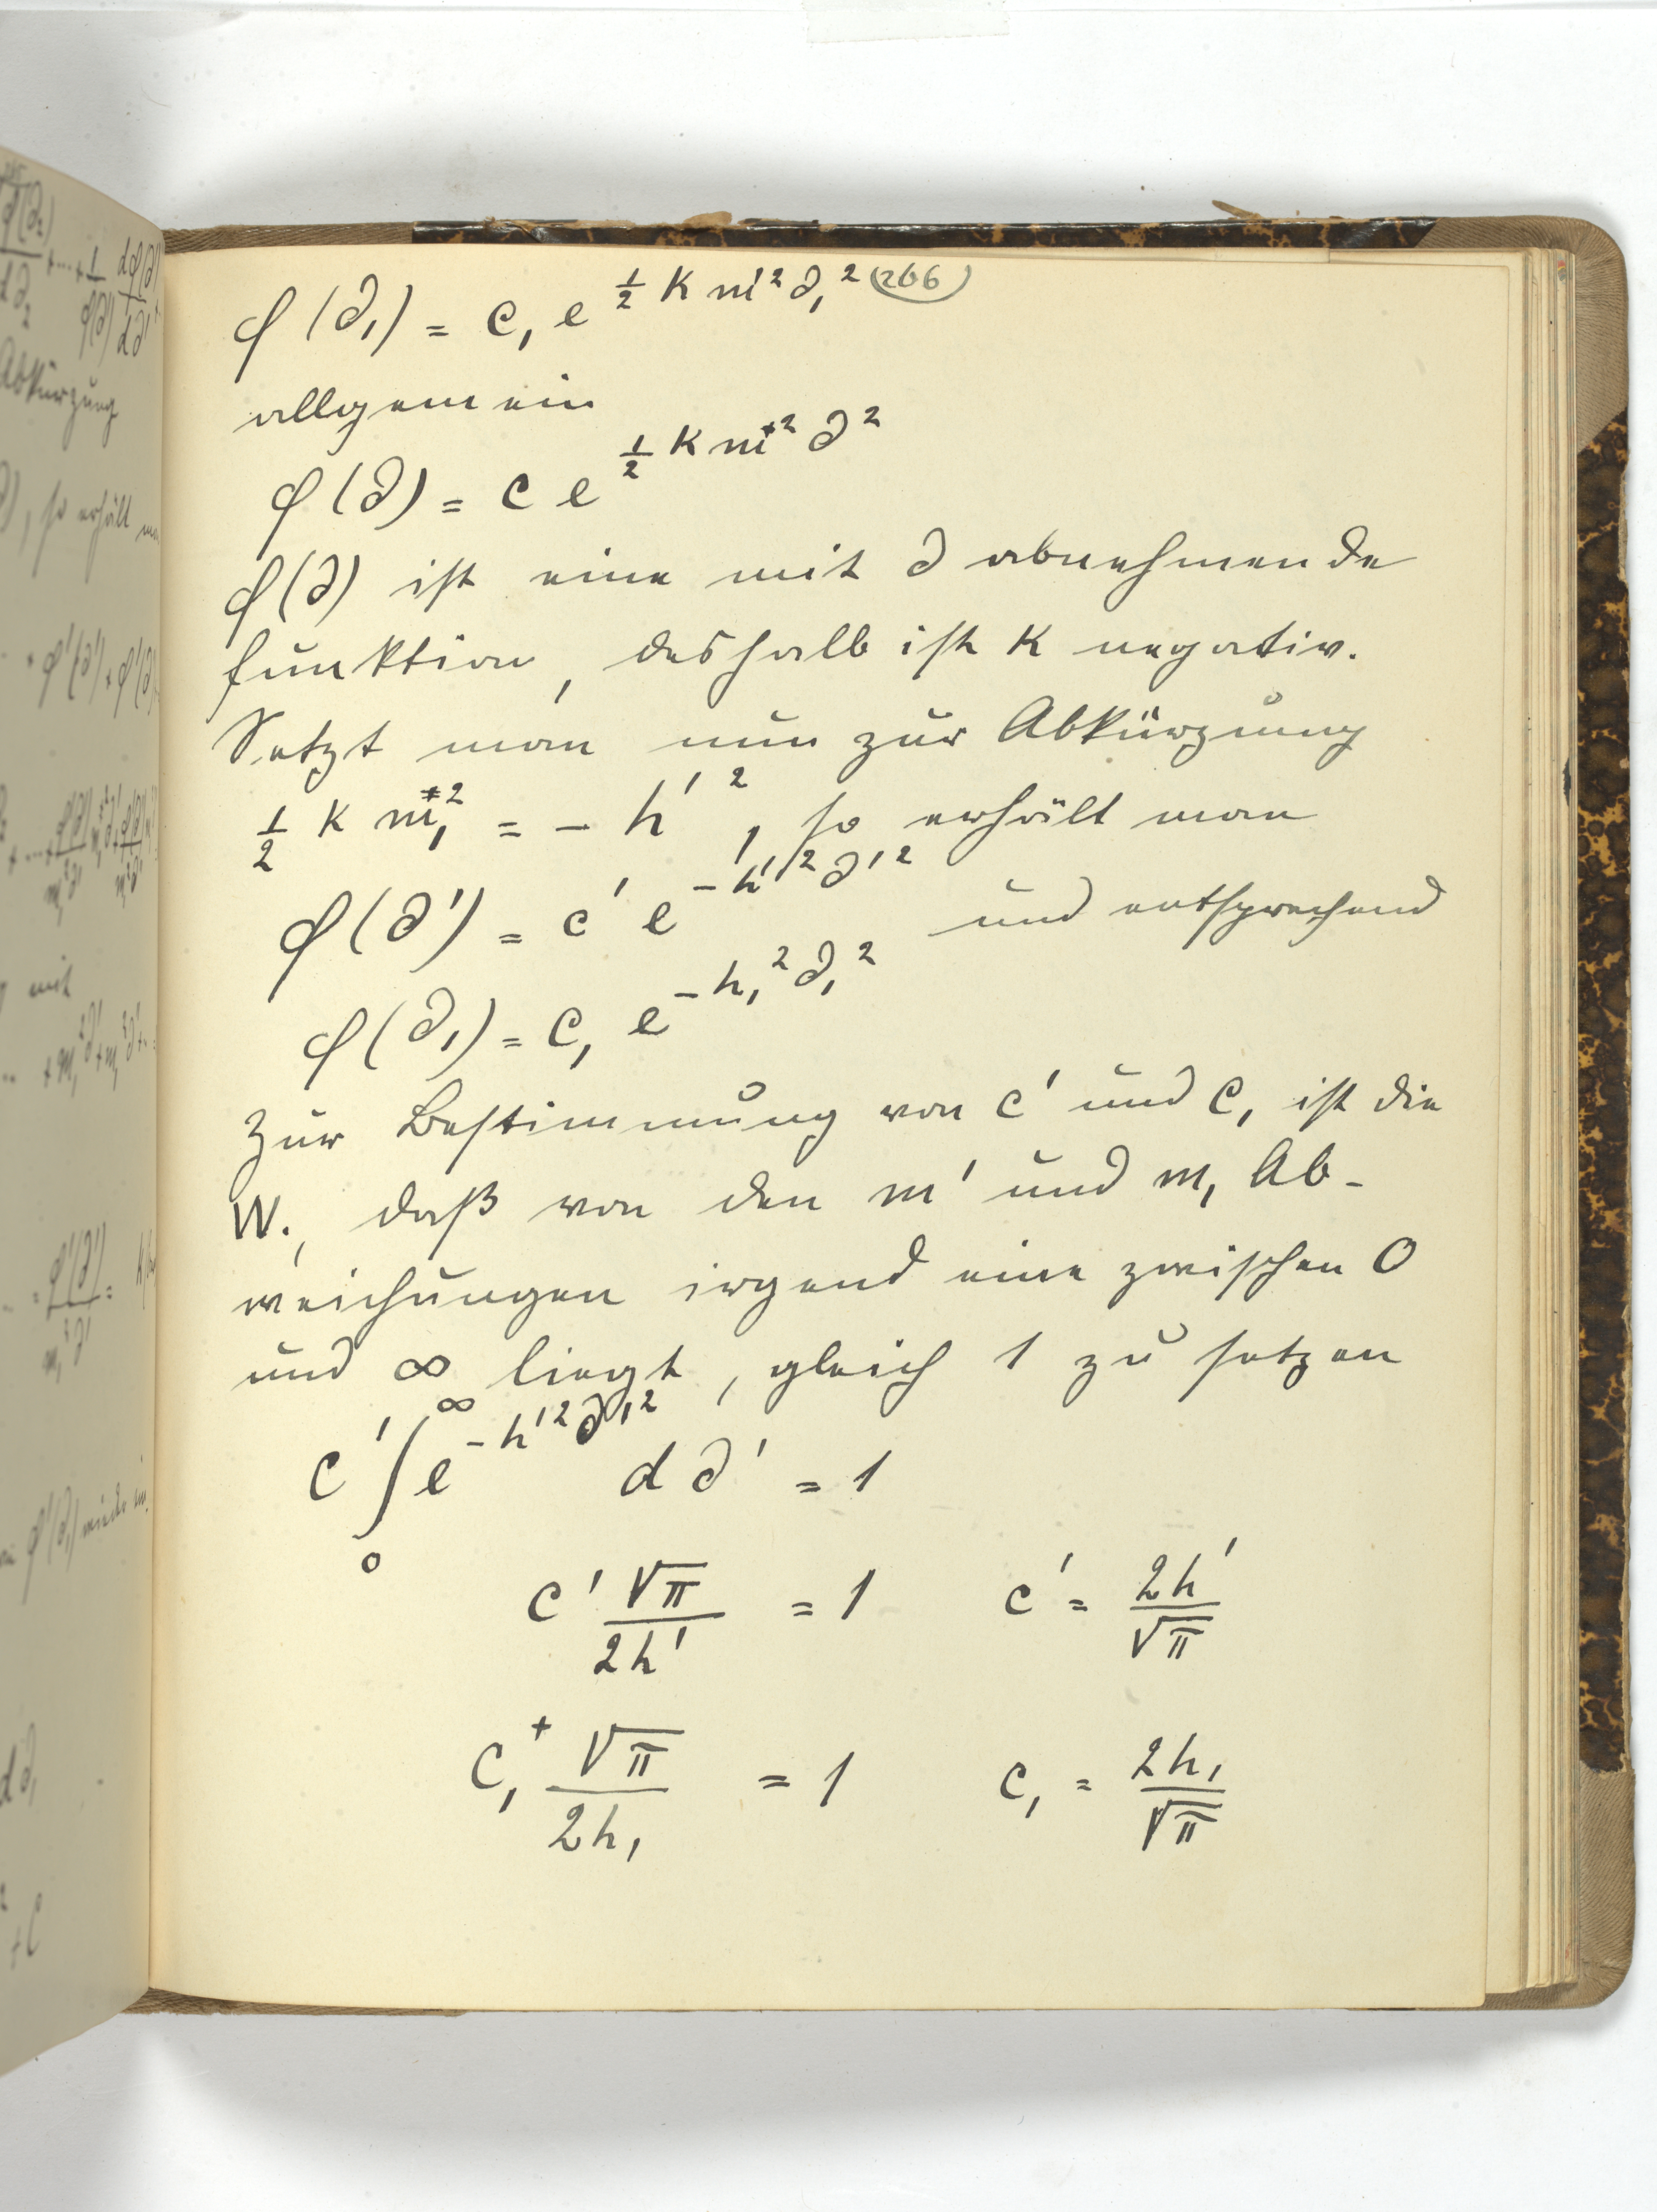 φ(∂₁) = c₁ e^{½ K m'² ∂₁²} (266)
allgemein
φ(∂) = c e^{½ K m² ∂²}
φ(∂) ist eine mit ∂ abnehmende
funktion, deshalb ist K negativ.
Setzt man nun zur Abkürzung
½ K m₁² = − h'², so erhält man
φ(∂') = c' e^{−h'² ∂'²} und entsprechend
φ(∂₁) = c₁ e^{−h₁² ∂₁²}
Zur Bestimmung von c' und c₁ ist die
W., daß von den m' und m₁ Ab-
weichungen irgend eine zwischen 0
und ∞ liegt, gleich 1 zu setzen
c' ∫₀^∞ e^{−h'² ∂'²} d∂' = 1
c' √π / 2h' = 1 c' = 2h' / √π
c₁⁺ √π / 2h₁ = 1 c₁ = 2h₁ / √π